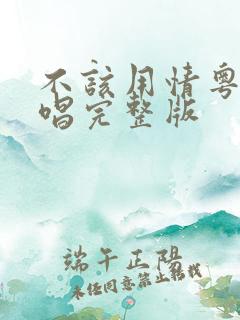 不该用情粤
唱完整版
端午正阳
未经同意禁止转载